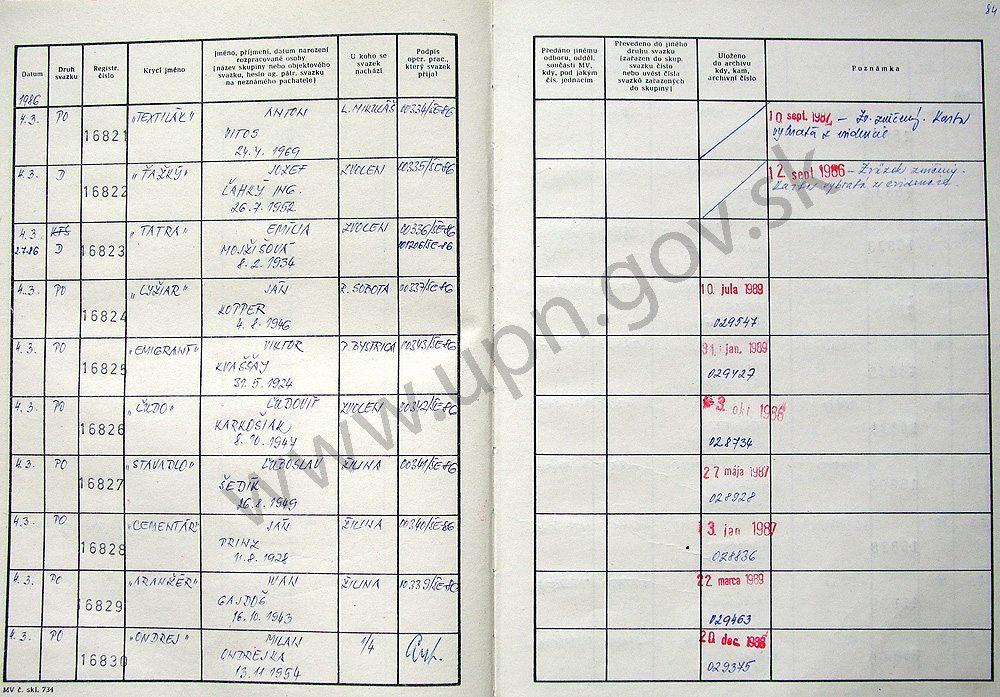 84
Datum
Druh svazku
Registr. číslo
Krycí jméno
Jméno, příjmení, datum narození
rozpracované osoby
(název skupiny nebo objektového
svazku, heslo ag. pátr. svazku
na neznámého pachatele)
U koho se
svazek
nachází
Podpis
oper. prac.,
který svazek
přijal
Předáno jinému
odboru, odděl.
součásti MV,
kdy, pod jakým
čís. jednacím
Převedeno do jiného
druhu svazku
(zařazen do skup.
svazku číslo
nebo uvést čísla
svazků zařazených
do skupiny)
Uloženo
do archivu
kdy, kam,
archivní číslo
Poznámka
1986
4.3. PO 16821 "TEXTILÁK" ANTON L. MIKULÁŠ 00334/ŠE-86
VITOS
24.4.1969
10. sept. 1987 – Zv. zničený. Karta
vybratá z evidencie
4.3. D 16822 "ŤAŽKÝ" JOZEF ZVOLEN 00335/ŠE-86
ĽAHKÝ ING.
26.7.1952
12. sept. 1986 – Zväzok zničený.
Karta vybratá z evidencie.
4.3. KTS 16823 "TATRA" EMÍLIA ZVOLEN 00336/ŠE-86
2.7.86 D MOJŽIŠOVÁ 001206/ŠE-86
8.2.1934
4.3. PO 16824 "LYŽIAR" JÁN R. SOBOTA 00337/ŠE-86
KOPPER
4.8.1946
10. júla 1989
029547
4.3. PO 16825 "EMIGRANT" VIKTOR P. BYSTRICA 00343/ŠE-86
KVAŠŠAY
31.5.1924
31. jan. 1989
029427
4.3. PO 16826 "ĽUDO" ĽUDOVÍT ZVOLEN 00342/ŠE-86
KARKOŠIAK
8.10.1947
3. okt. 1986
028734
4.3. PO 16827 "STAVADLO" ĽUBOSLAV ŽILINA 00341/ŠE-86
ŠEDÍK
16.8.1949
27. mája 1987
028928
4.3. PO 16828 "CEMENTÁR" JÁN ŽILINA 00340/ŠE-86
PRINZ
11.8.1928
13. jan 1987
028836
4.3. PO 16829 "ARANŽÉR" IVAN ŽILINA 00339/ŠE-86
GAJDOŠ
16.10.1943
22. marca 1989
029463
4.3. PO 16830 "ONDREJ" MILAN 1/4
ONDREJKA
13.11.1954
20. dec. 1988
029375
MV č. skl. 734
www.upn.gov.sk